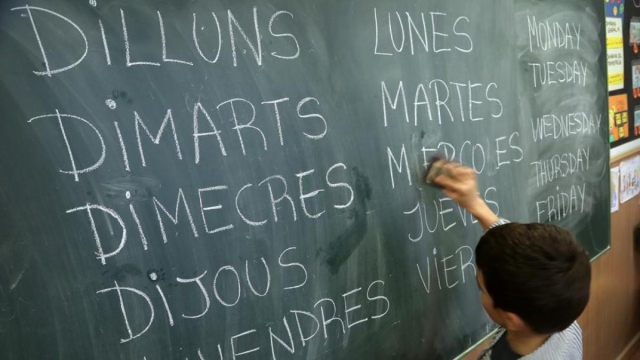 DILLUNS
DIMARTS
DIMECRES
DIJOUS
VENDRES
LUNES
MARTES
JUEVES
VIER
MONDAY
TUESDAY
WEDNESDAY
THURSDAY
FRIDAY